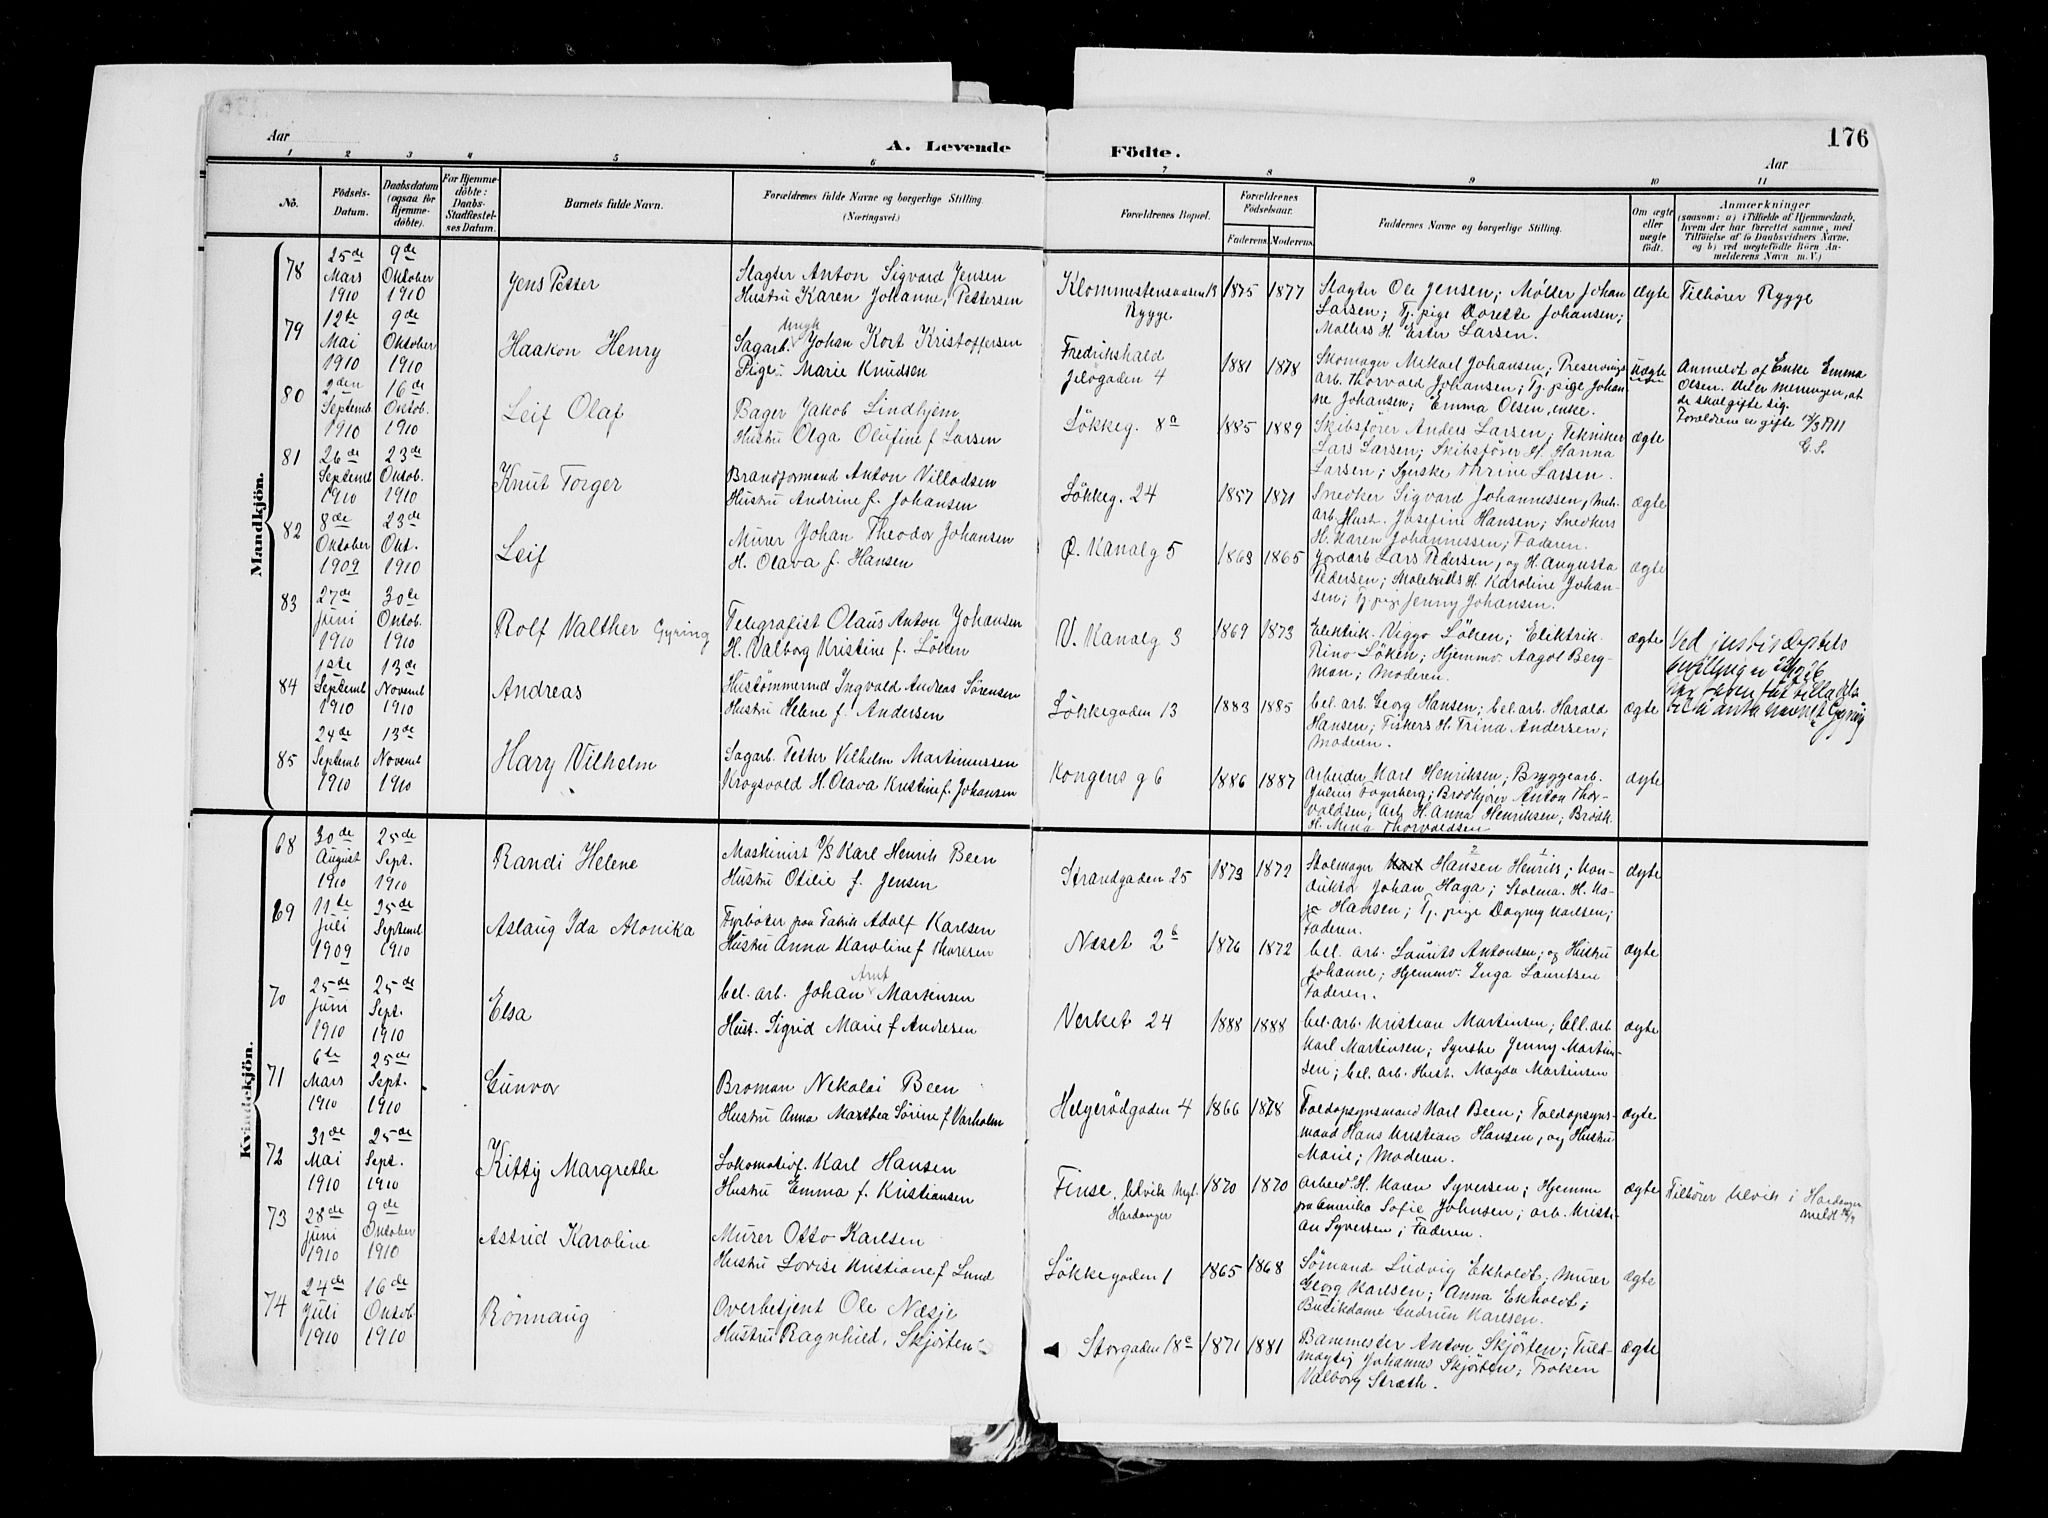 176
Aar
A. Levende Födte.
Aar
1 2 3 4 5 6 7 8 9 10 11
No.
Födsels-Datum.
Daabsdatum (ogsaa for Hjemme-döbte).
For Hjemme-döbte: Daabs-Stadfæstel-ses Datum.
Barnets fulde Navn.
Forældrenes fulde Navne og borgerlige Stilling.
(Næringsvei.)
Forældrenes Bopæl.
Forældrenes Födselsaar.
Faderens. Moderens.
Faddernes Navne og borgerlige Stilling.
Om ægte eller uægte födt.
Anmærkninger
(saasom: a) i Tilfælde af Hjemmedaab,
hvem der har forrettet samme, med
Tilföielse af to Daabsvidners Navne,
og b) ved uægtefödte Börn An-
melderens Navn m. V.)
Mandkjön.
78 25de Mars 1910 9de Oktober 1910
Jens Petter
Slagter Anton Sigvard Jensen
Hustru Karen Johanne, Pettersen
Rygge.
1875 1877
Slagter Ole Jensen; Møller Johan
Larsen; Tj. pige Dorette Johansen;
Møllers H. Ester Larsen.
ægte
Tilhører Rygge
79 12te Mai 1910 9de Oktober 1910
Haakon Henry
Ungk
Sagarb. Johan Kort Kristoffersen
Pige: Marie Knudsen
Fredrikshald
Jeløgaden 4
1881 1878
Skomager Mikael Johansen; Preservings
arb. Thorvald Johansen; Tj. pige Johan
ne Johansen; Emma Olsen, enke.
uægte
Anmeldt af Enke Emma
Olsen. Det er meningen, at
de skal gifte sig.
Forældrene er gifte 12/3 1911
G.S.
80 2den Septemb. 1910 16de Oktob. 1910
Leif Olaf
Bager Jakob Lindhjem
Hustru Olga Olufine f Larsen
Løkkeg. 8a
1885 1889
Skibsfører Anders Larsen; Tekniker
Lars Larsen; Skibsfører H. Hanna
Larsen; Syerske Thrine Larsen.
ægte
81 26de Septemb 1910 23de Oktob. 1910
Knut Torger
Brandformand Anton Villadsen
Hustru Andrine f. Johansen
Løkkeg. 24
1857 1871
Snedker Sigvard Johannessen, Mek.
arb. Hust. Josefine Hansen; Snedkers
H. Karen Johannessen; Faderen.
ægte
82 8de Oktober 1909 23de Okt. 1910
Leif
Murer Johan Theodor Johansen
H. Olava f. Hansen
Ø. Kanalg 5
1863 1865
Jordarb Lars Pedersen, og H. Augusta
Pedersen; H. Karoline Johan-
sen; Tj. pige Jenny Johansen.
ægte
83 27de Juni 1910 30te Oktob. 1910
Rolf Valther Gyring
Telegrafist Olaus Anton Johansen
H. Valborg Kristine f. Løken
V. Kanalg 3
1869 1873
Elektrik. Viggo Løken; Eliktrik.
Rino Løken; Hjemmv. Aagot Berg-
man; Moderen.
ægte
Ved justisdeptets
84 1ste Septemb 1910 13de Novemb 1910
Andreas
Hustømmermd Ingvald Andreas Sørensen
Hustru Helene f. Andersen
Løkkegaden 13
1883 1885
Cel. arb. Georg Hansen; Cel. arb. Harald
Hansen; Fiskers H. Trina Andersen;
Moderen.
ægte
85 24de Septemb 1910 13de Novemb 1910
Hary Vilhelm
Sagarb. Petter Vilhelm Martinussen
Krogsvold H. Olava Kristine f. Johansen
Kongens g 6
1886 1887
Arbeider Karl Henriksen; Bryggearb.
Julius Fagerberg; Brødkjører Anton Thor-
valdsen; Arb H. Anna Henriksen; Brødk.
H. Mina Thorvaldsen
ægte
Kvindekjön.
68 30de August 1910 25de Sept. 1910
Randi Helene
Maskinist D/S Karl Henrik Been
Hustru Otilie f. Jensen
Strandgaden 25
1873 1872
Stolmager Hansen Henrik; Kon-
duktør Johan Haga; Stolma. H. Ka-
ja Hansen; Tj. pige Dagny Karlsen;
Faderen.
ægte
69 11te Juli 1909 25de Septemb 1910
Aslaug Ida Monika
Fyrbøter paa Fabrik Adolf Karlsen
Hustru Anna Karoline f Thoresen
Næset 2b
1876 1872
Cel. arb. Laurits Antonsen; og Hustru
Johanne; Hjemmv. Inga Lauritsen
Faderen.
ægte
70 25de Juni 1910 25de Sept. 1910
Elsa
Arnt
Cel. arb. Johan Martinsen
Hust. Sigrid Marie f Andresen
Verket 24
1888 1888
Cel. arb. Kristian Martinsen; Cell. arb
Karl Martinsen; Syerske Jenny Martin-
sen; Cel. arb. Hust. Magda Martinsen
ægte
71 6te Mars 1910 25de Sept. 1910
Gunvor
Broman Nikolai Been
Hustru Anna Marthea Sørine f Varholm
Helgerødgaden 4
1866 1878
Toldopsynsmand Karl Been; Toldopsyns-
mand Hans Kristian Hansen, og Hustru
Marie; Moderen.
ægte
72 31de Mai 1910 25de Sept. 1910
Kitty Margrethe
Lokomotivf. Karl Hansen
Hustru Emma f. Kristiansen
Finse, Ulvik
Hardanger
1870 1870
Arbeid H. Karen Syversen; Hjemme
fra Amerika Sofie Johnsen; arb. Kristi-
an Syversen; Faderen.
ægte
Tilhører Ulvik i Hardanger
meldt
73 28de Juni 1910 9de Oktober 1910
Astrid Karoline
Murer Otto Karlsen
Hustru Lovise Kristiane f Lund
Løkkegaden 1
1865 1868
Sømand Ludvig Ekholdt; Murer
Georg Karlsen; Anna Ekholdt;
Butikdame Gudrun Karlsen.
ægte
74 24de Juli 1910 16de Oktob 1910
Rønnaug
Overbetjent Ole Næsje
Hustru Ragnhild, Skjørten
Storgaden 18c
1871 1881
Banemester Anton Skjørten; Fuld-
mægtig Johannes Skjørten; Frøken
Valborg Stræth.
ægte